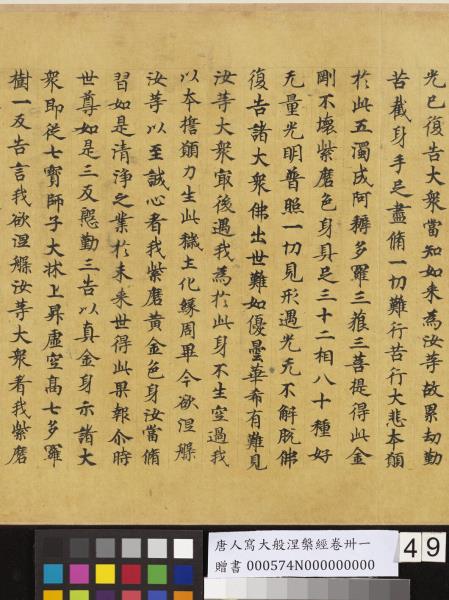 光已復告大衆當知如来為汝等故累劫勤
苦截身手足盡脩一切難行苦行大悲本願
於此五濁成阿耨多羅三藐三菩提得此金
剛不壞紫磨色身具足三十二相八十種好
无量光明普照一切見形遇光无不解脫佛
復告諸大衆佛出世難如優曇華希有難見
汝等大衆冣後遇我為於此身不生空過我
以本擔願力生此穢土化緣周畢今欲涅槃
汝等以至誠心看我紫磨黃金色身汝當脩
習如是清淨之業於未来世得此果報尒時
世尊如是三反慇勤三告以真金身示諸大
衆即從七寶師子大牀上昇虛空高七多羅
樹一反告言我欲涅槃汝等大衆看我紫磨
唐人寫大般涅槃經卷卅一
贈書 000574N000000000
49